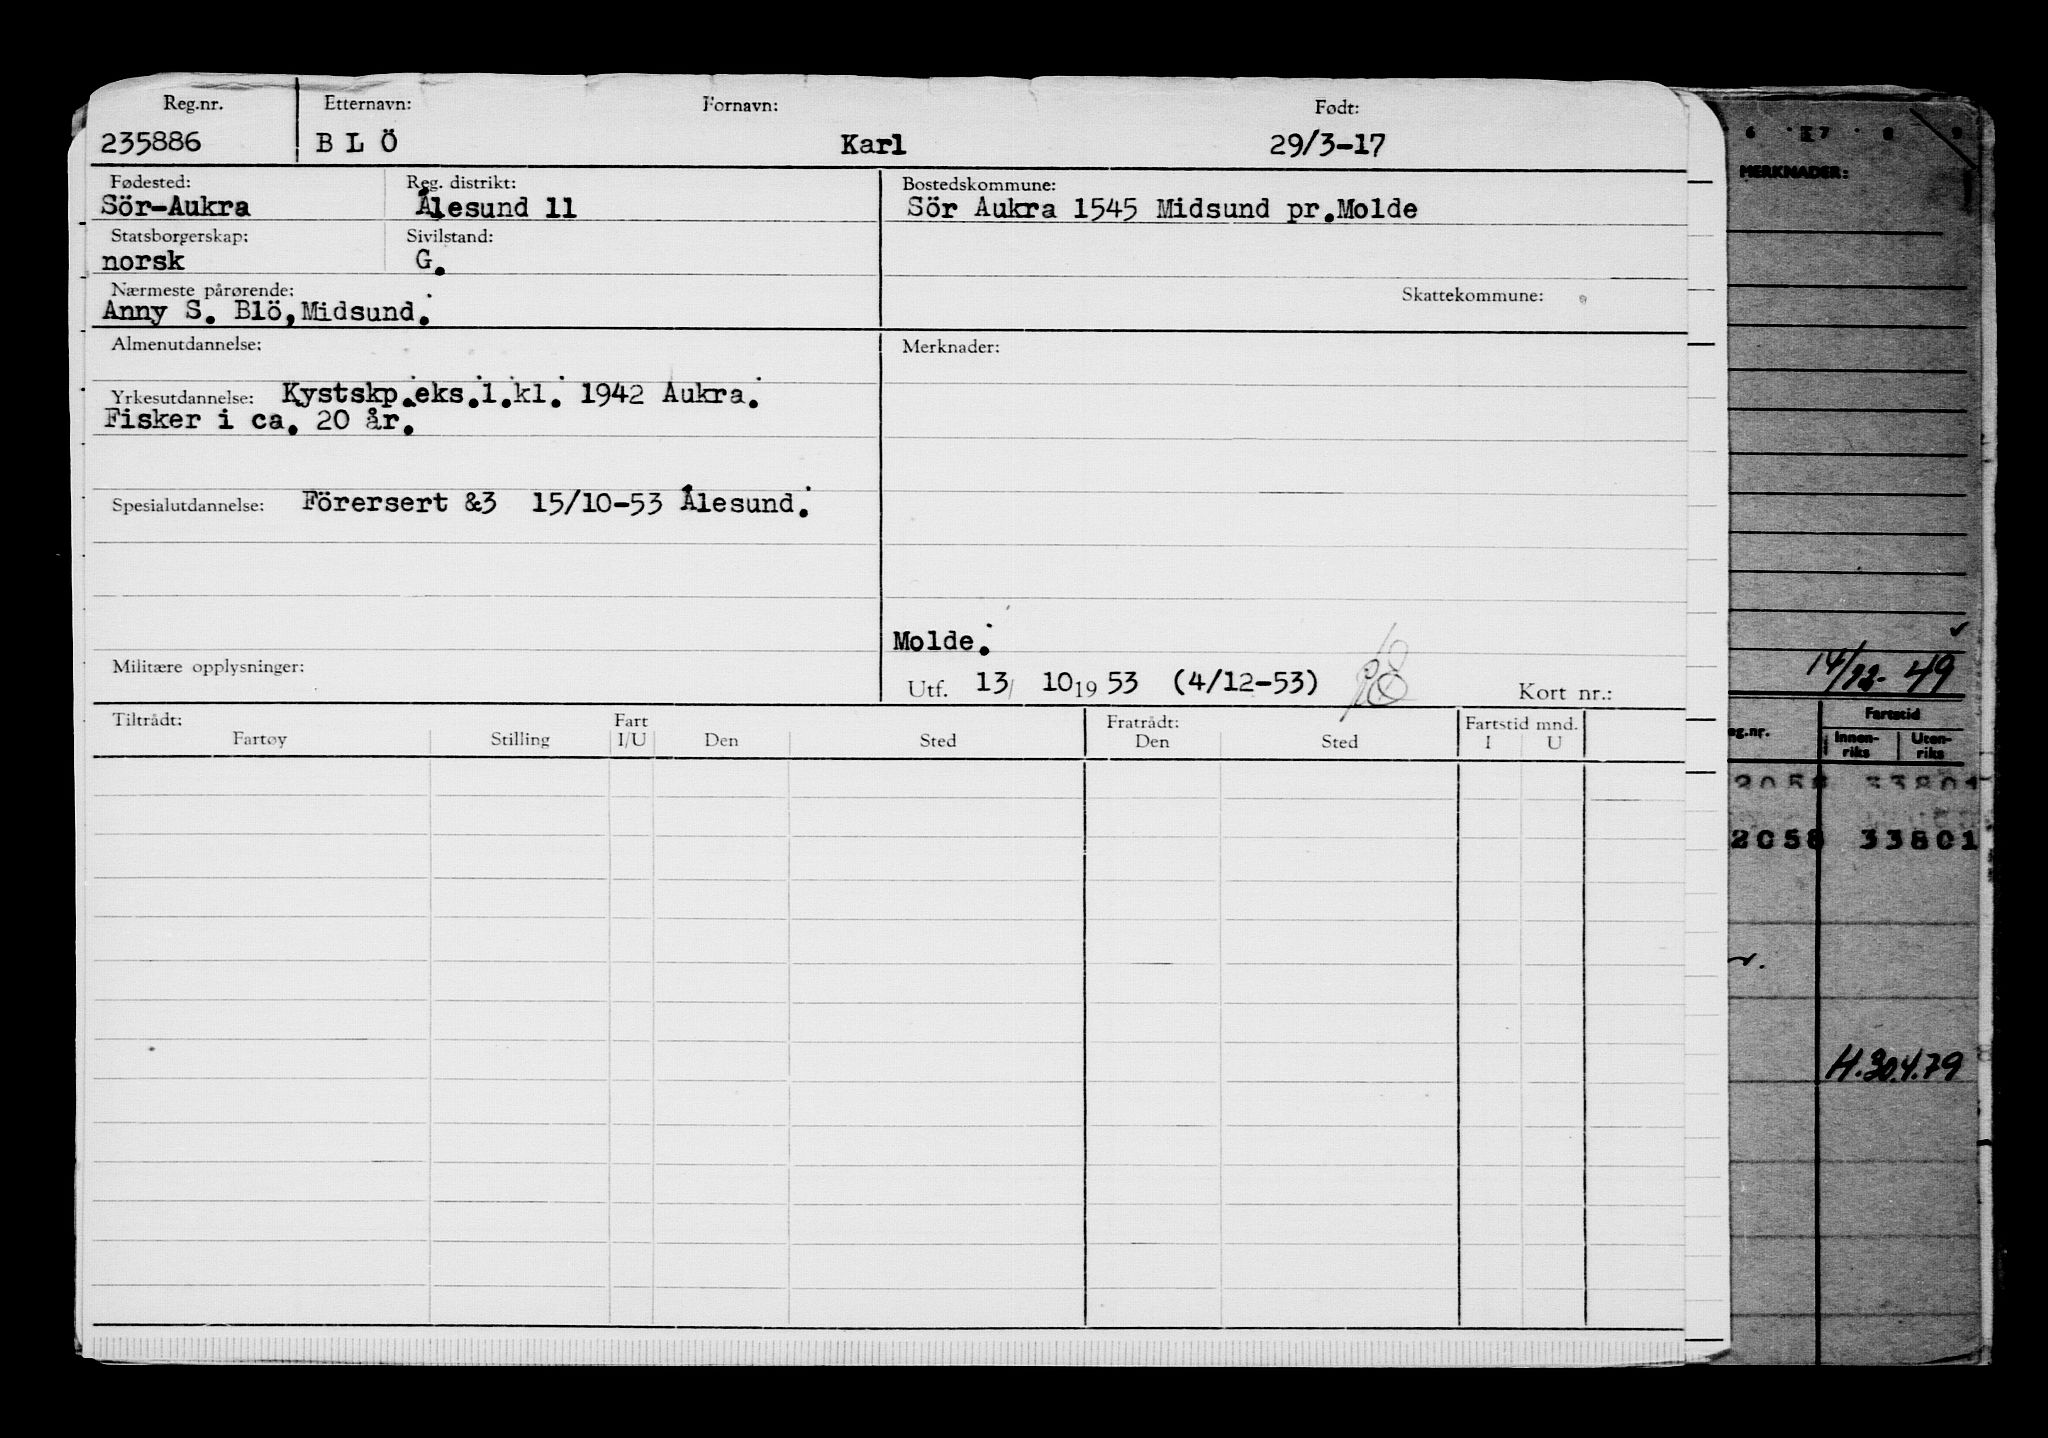 Reg.nr. Etternavn: Fornavn: Født:
235886 BLÖ Karl 29/3-17
Fødested: Reg. distrikt: Bostedskommune:
Sör-Aukra Ålesund 11 Sör Aukra 1545 Midsund pr.Molde
Statsborgerskap: Sivilstand:
norsk G.
Nærmeste pårørende: Skattekommune:
Anny S. Blö, Midsund.
Almenutdannelse: Merknader:
Yrkesutdannelse: Kystskp.eks.1.kl. 1942 Aukra.
Fisker i ca. 20 år.
Spesialutdannelse: Förersert &3 15/10-53 Ålesund.
Molde.
Militære opplysninger:
Utf. 13/ 10 19 53 (4/12-53) Kort nr.:
Tiltrådt: Fart Fratrådt: Fartstid mnd.
Fartøy Stilling I/U Den Sted Den Sted I U
6 7 8 9
MERKNADER:
14/12-49
Fartstid
eg.nr. Innen-riks Uten-riks
2058 33801
2058 33801
H.30.4.79